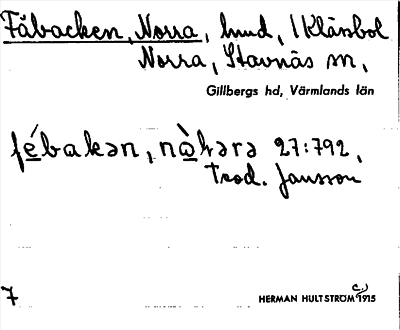 Fäbacken, Norra, hmd, i Klässbol
Norra, Stavnäs sn,
Gillbergs hd, Värmlands län
fé̱bakən, nò̱r̄ərə 27:792,
Trod. Jansson
7
HERMAN HULTSTRÖM 1915